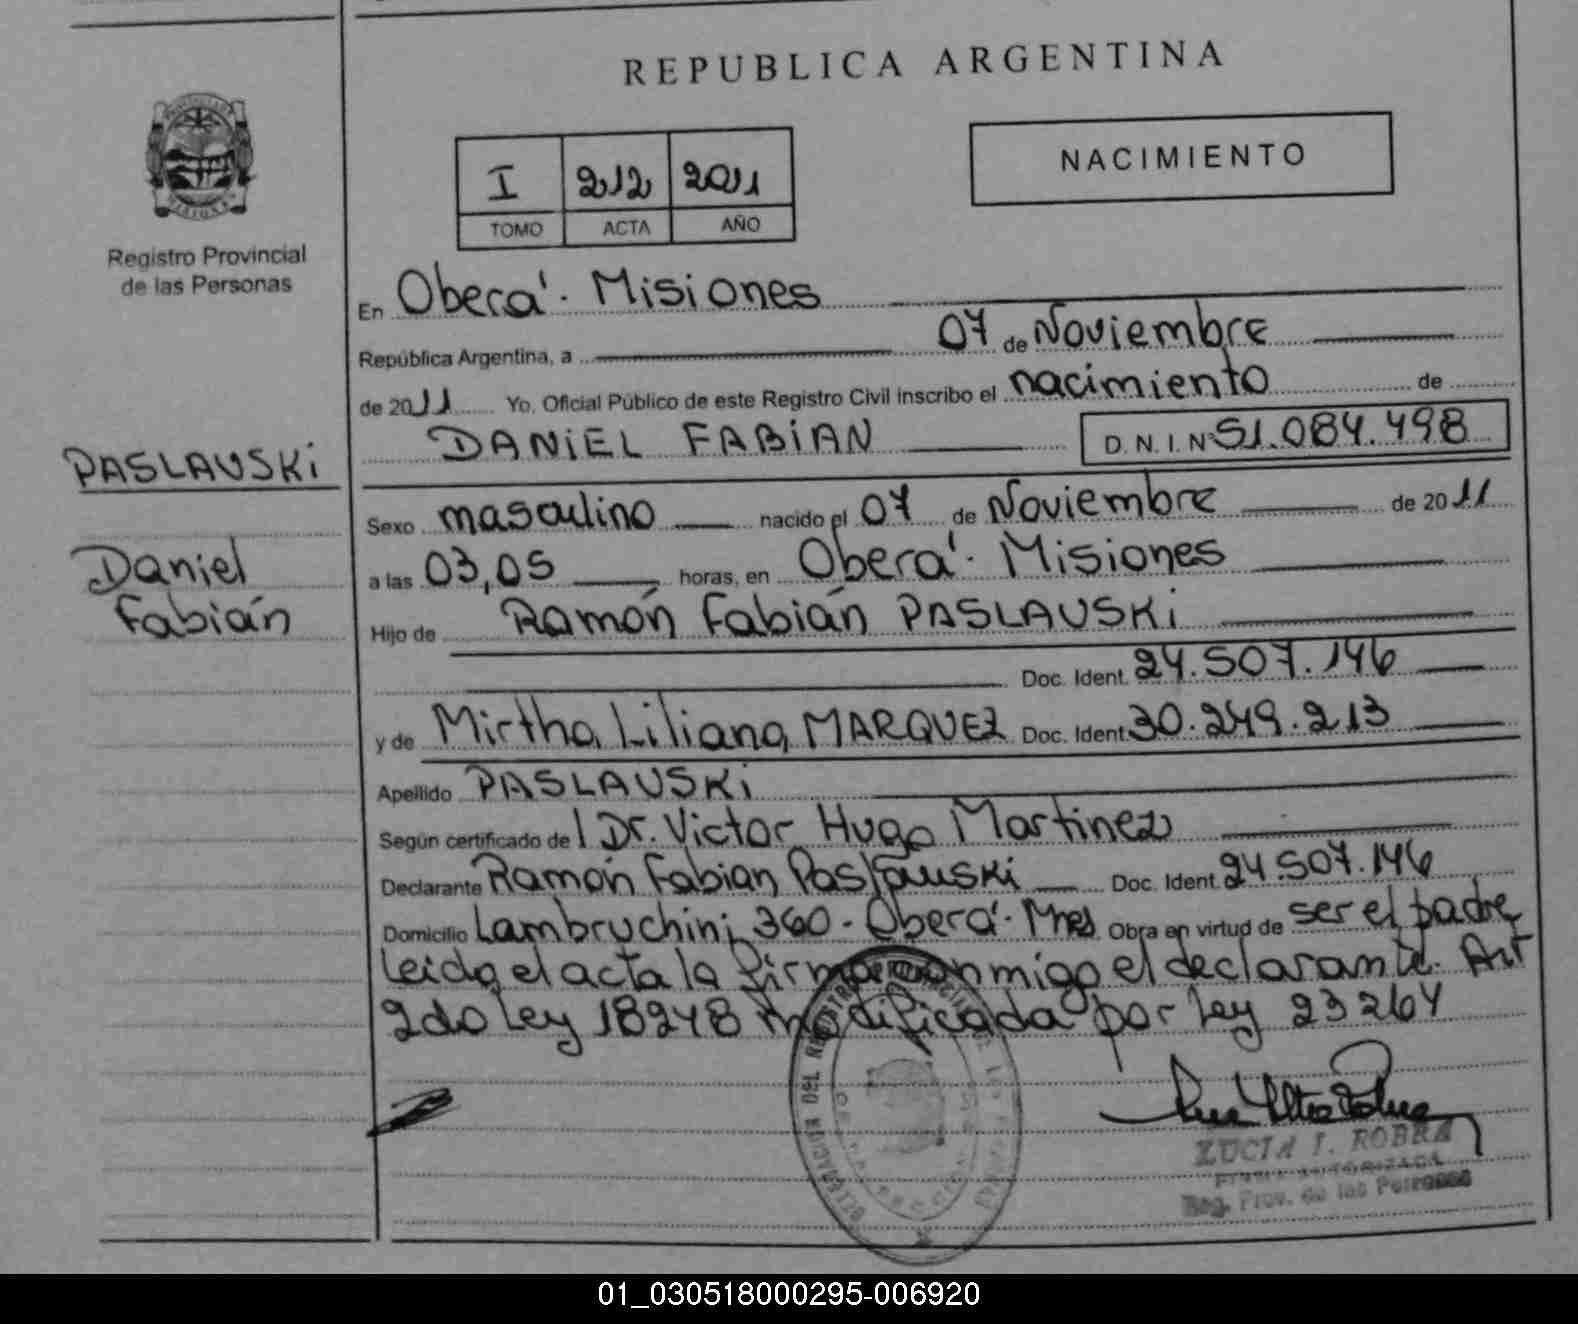 REPUBLICA ARGENTINA
NACIMIENTO
I 212 2011
TOMO ACTA AÑO
Registro Provincial
de las Personas
En Oberá. Misiones
República Argentina, a 07 de Noviembre
de 2011 Yo, Oficial Público de este Registro Civil inscribo el nacimiento de
DANIEL FABIAN D.N.I.Nº 51.084.498
PASLAUSKi
Daniel
Fabián
Sexo masculino nacido el 07 de Noviembre de 2011
a las 03,05 horas, en Oberá. Misiones
Hijo de Ramón Fabián PASLAUSKi
Doc. Ident. 24.507.146
y de Mirtha Liliana MARQUEZ Doc. Ident. 30.249.213
Apellido PASLAUSKi
Según certificado de l Dr. Victor Hugo Martinez
Declarante Ramón Fabian Paslauski Doc. Ident. 24.507.146
Domicilio Lambruchini 360 - Oberá. Mnes Obra en virtud de ser el padre
leida el acta la firma conmigo el declarante. Art
2do ley 18248 modificada por ley 23264
LUCIA I. ROBRA
FIRMA AUTORIZADA
Reg. Prov. de las Personas
01_030518000295-006920